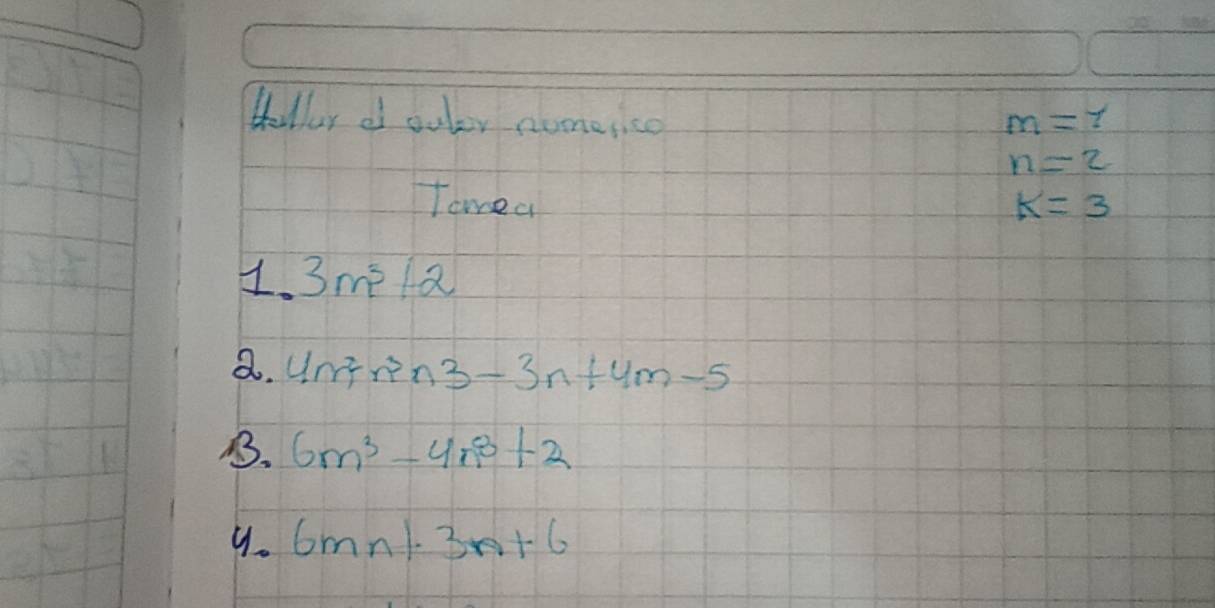 Hallar el valor numerico
m = 1
n = 2
Tarea
K = 3
1. 3m³ + 2
2.
- 3n + 4m - 5
3. 6m³ - 4n³ + 2
4. 6mn + 3n + 6